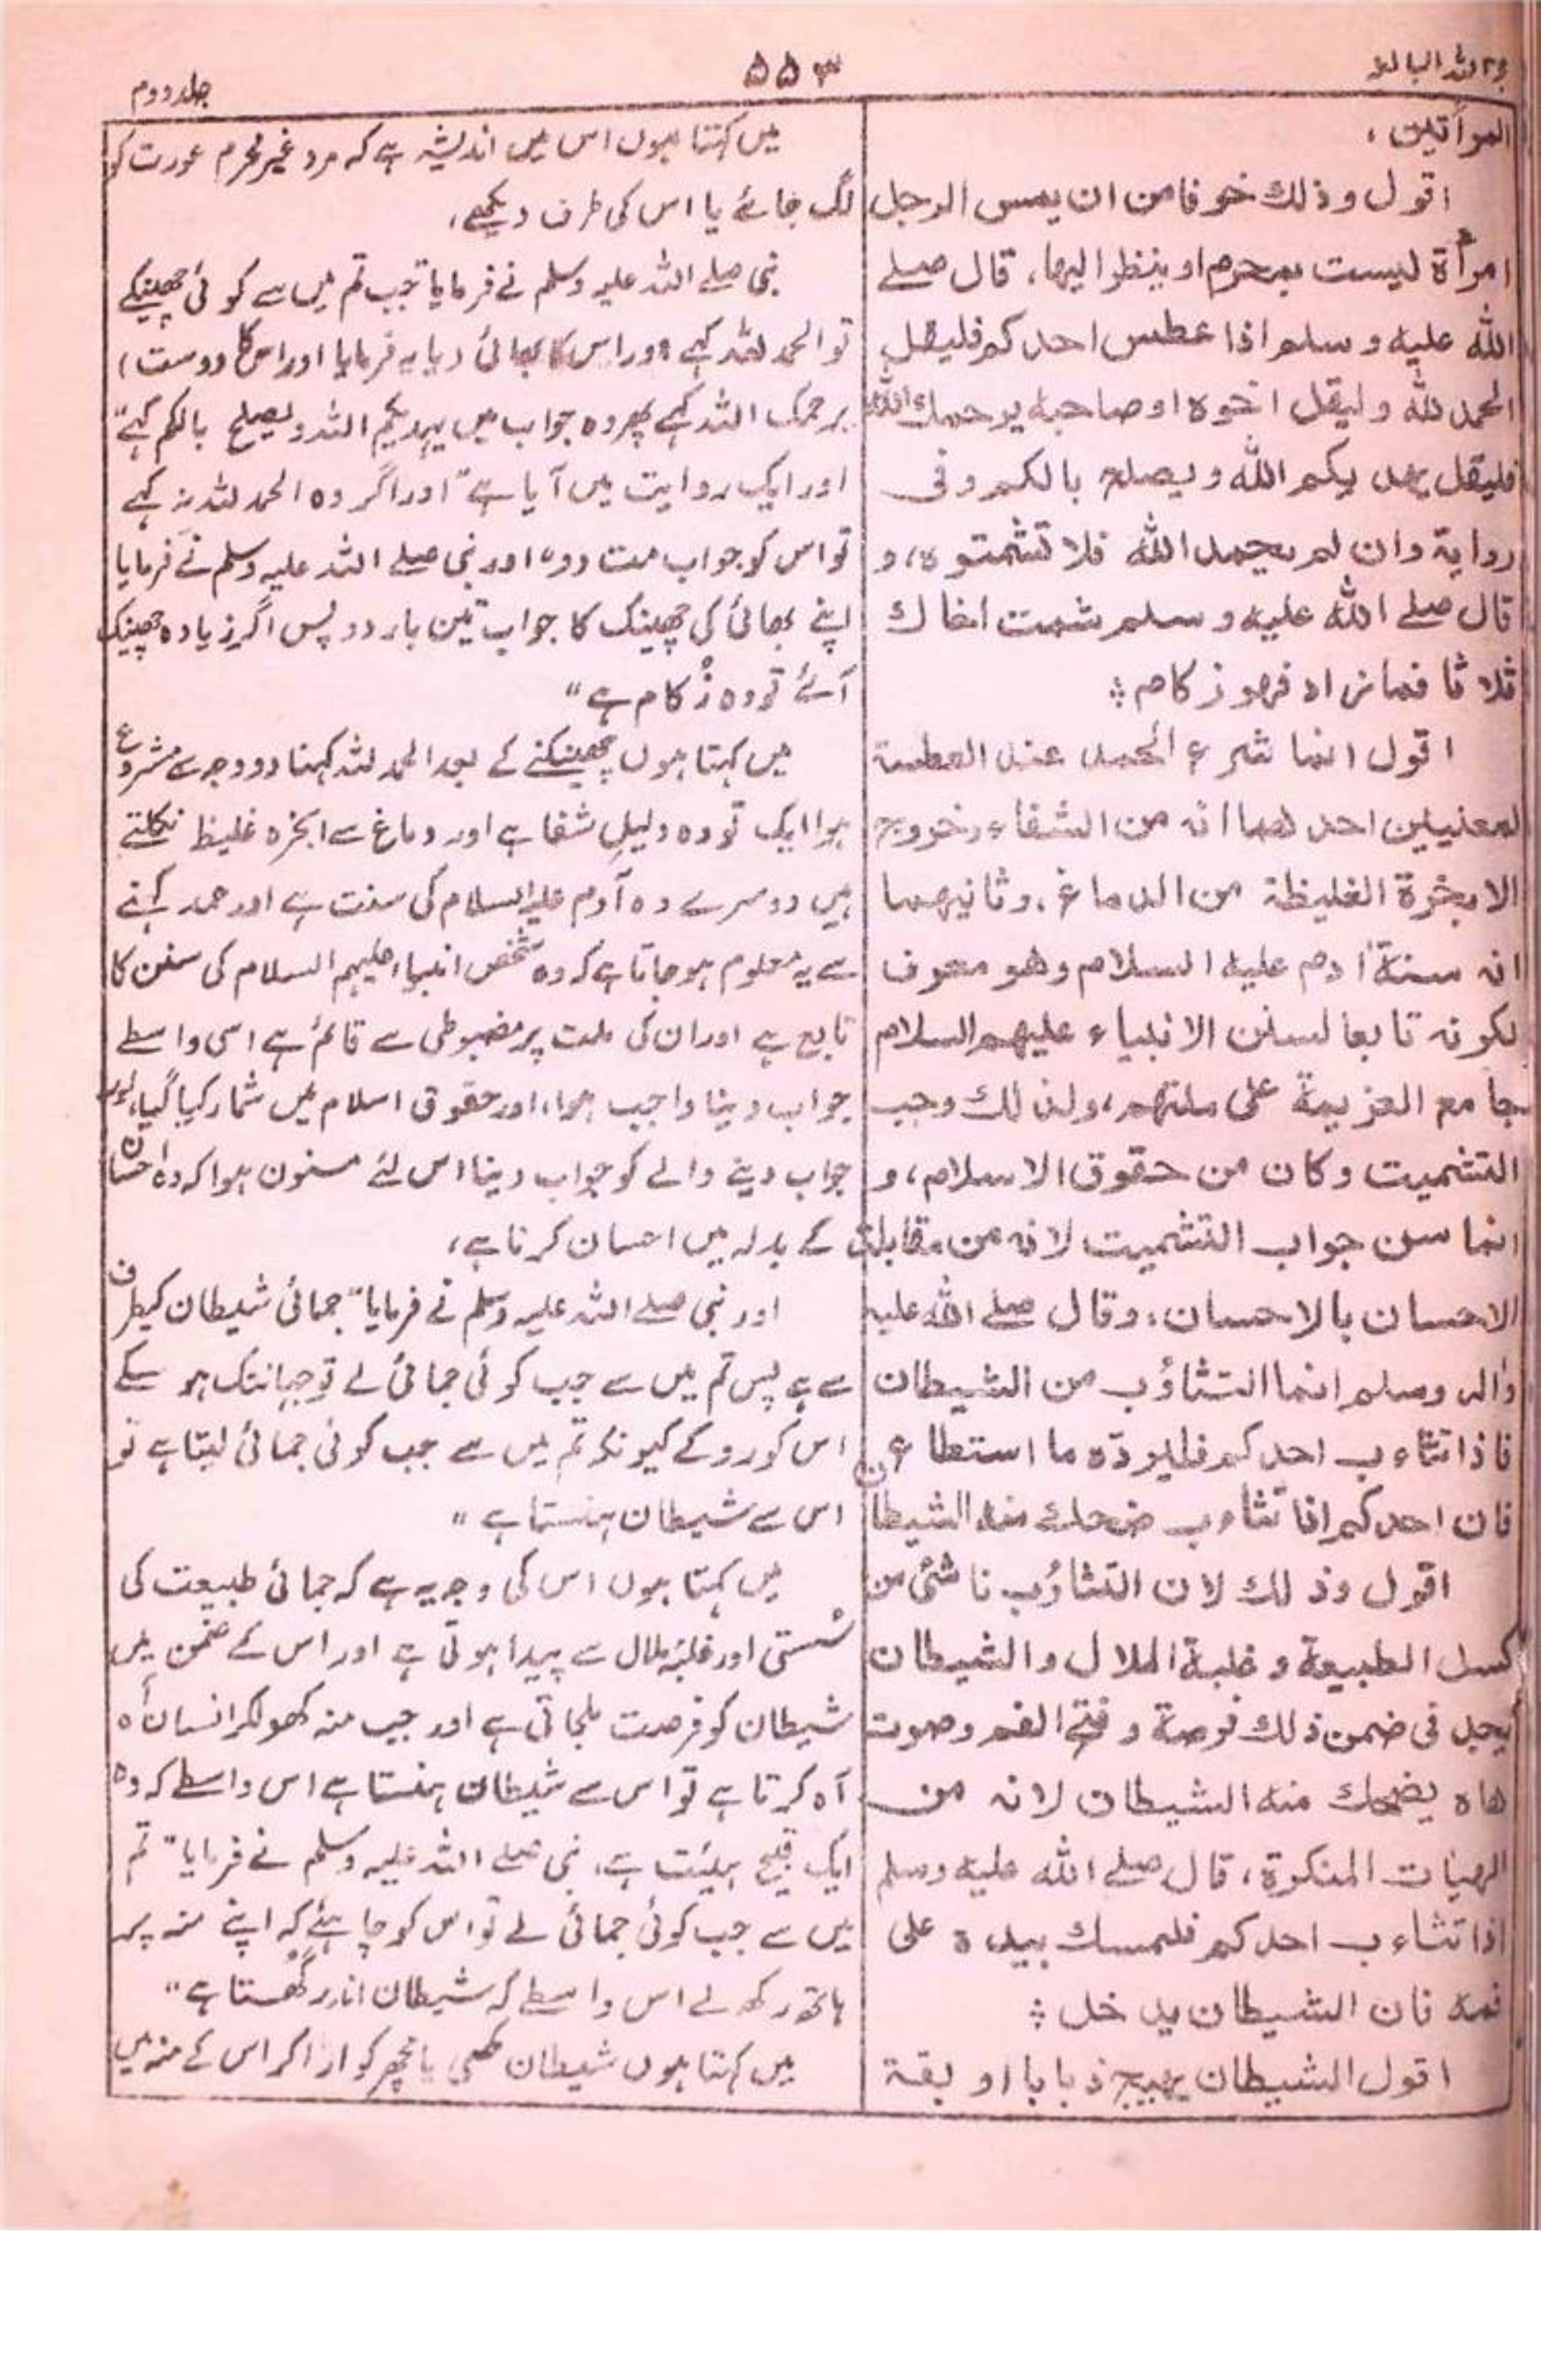 حجۃ اللہ البالغہ
۵۵۳
جلد دوم
المرأتین ،
اقول وذلك خوفا من ان يمس الرجل
امرأة ليست بمحرم او ينظر اليها، قال صلے
الله عليه وسلم اذا عطس احدكم فليقل
الحمد لله وليقل اخوه او صاحبه يرحمك الله
فليقل يهديكم الله ويصلح بالكم وفى
رواية وان لم يحمد الله فلا تشمتوه، و
قال صلے الله عليه وسلم شمت اخاك
ثلاثا فما زاد فهو زكام ؞
اقول انما شرع الحمد عند العطسة
لمعنيين احدهما انه من الشفاء وخروج
الابخرة الغليظة من الدماغ، وثانيهما
انه سنة أدم عليه السلام وهو معرف
لكونه تابعا لسنن الانبياء عليهم السلام
جامع العزيمة على ملتهم، ولذلك وجب
التشميت وكان من حقوق الاسلام، و
انما سن جواب التشميت لانه من مقابلة
الاحسان بالاحسان، وقال صلے الله عليه
واله وسلم انما التثاؤب من الشيطان
فاذا تثاءب احدكم فليرده ما استطاع
فان احدكم اذا تثاءب ضحك منه الشيطان
اقول وذلك لان التثاؤب ناشئ من
كسل الطبيعة وغلبة الملال والشيطان
يجد فى ضمن ذلك فرصة وفتح الفم وصوت
هاه يضحك منه الشيطان لانه من
الهيات المنكرة، قال صلے الله عليه وسلم
اذا تثاءب احدكم فليمسك بيده على
فمه فان الشيطان يدخل ؞
اقول الشيطان يهيج ذبابا او بقة
میں کہتا ہوں اس میں اندیشہ ہے کہ مرد غیر محرم عورت کو
لگ جائے یا اس کی طرف دیکھے،
نبی صلے اللہ علیہ وسلم نے فرمایا "جب تم میں سے کوئی چھینکے
تو الحمد للہ کہے اور اس کا بھائی (یا یہ فرمایا اور اس کا دوست)
یرحمک اللہ کہے پھر وہ جواب میں یہدیکم اللہ ویصلح بالکم کہے"
اور ایک روایت میں آیا ہے "اور اگر وہ الحمد للہ نہ کہے
تو اس کو جواب مت دو" اور نبی صلے اللہ علیہ وسلم نے فرمایا
اپنے بھائی کی چھینک کا جواب تین بار دو پس اگر زیادہ چھینک
آئے تو وہ زُکام ہے"
میں کہتا ہوں چھینکنے کے بعد الحمد للہ کہنا دو وجہ سے مشروع
ہوا ایک تو وہ دلیلِ شفا ہے اور دماغ سے ابخرہ غلیظ نکلتے
ہیں دوسرے وہ آدم علیہ السلام کی سنت ہے اور حمد کہنے
سے یہ معلوم ہو جاتا ہے کہ وہ شخص انبیاء علیہم السلام کی سنن کا
تابع ہے اور ان کی ملت پر مضبوطی سے قائم ہے اسی واسطے
جواب دینا واجب ہوا، اور حقوق اسلام میں شمار کیا گیا، اور
جواب دینے والے کو جواب دینا اس لئے مسنون ہوا کہ وہ احسان
کے بدلہ میں احسان کرنا ہے،
اور نبی صلے اللہ علیہ وسلم نے فرمایا "جمائی شیطان کیطرف
سے ہے پس تم میں سے جب کوئی جمائی لے تو جہانتک ہو سکے
اس کو روکے کیونکہ تم میں سے جب کوئی جمائی لیتا ہے تو
اس سے شیطان ہنستا ہے"
میں کہتا ہوں اس کی وجہ یہ ہے کہ جمائی طبیعت کی
سُستی اور غلبۂ ملال سے پیدا ہوتی ہے اور اس کے ضمن میں
شیطان کو فرصت ملجاتی ہے اور جب منہ کھولکر انسان أہ
آہ کرتا ہے تو اس سے شیطان ہنستا ہے اس واسطے کہ وہ
ایک قبیح ہیئت ہے، نبی صلے اللہ علیہ وسلم نے فرمایا "تم
میں سے جب کوئی جمائی لے تو اس کو چاہئے کہ اپنے منہ پر
ہاتھ رکھ لے اس واسطے کہ شیطان اندر گھستا ہے"
میں کہتا ہوں شیطان مکھی یا مچھر کو اڑا کر اس کے منہ میں